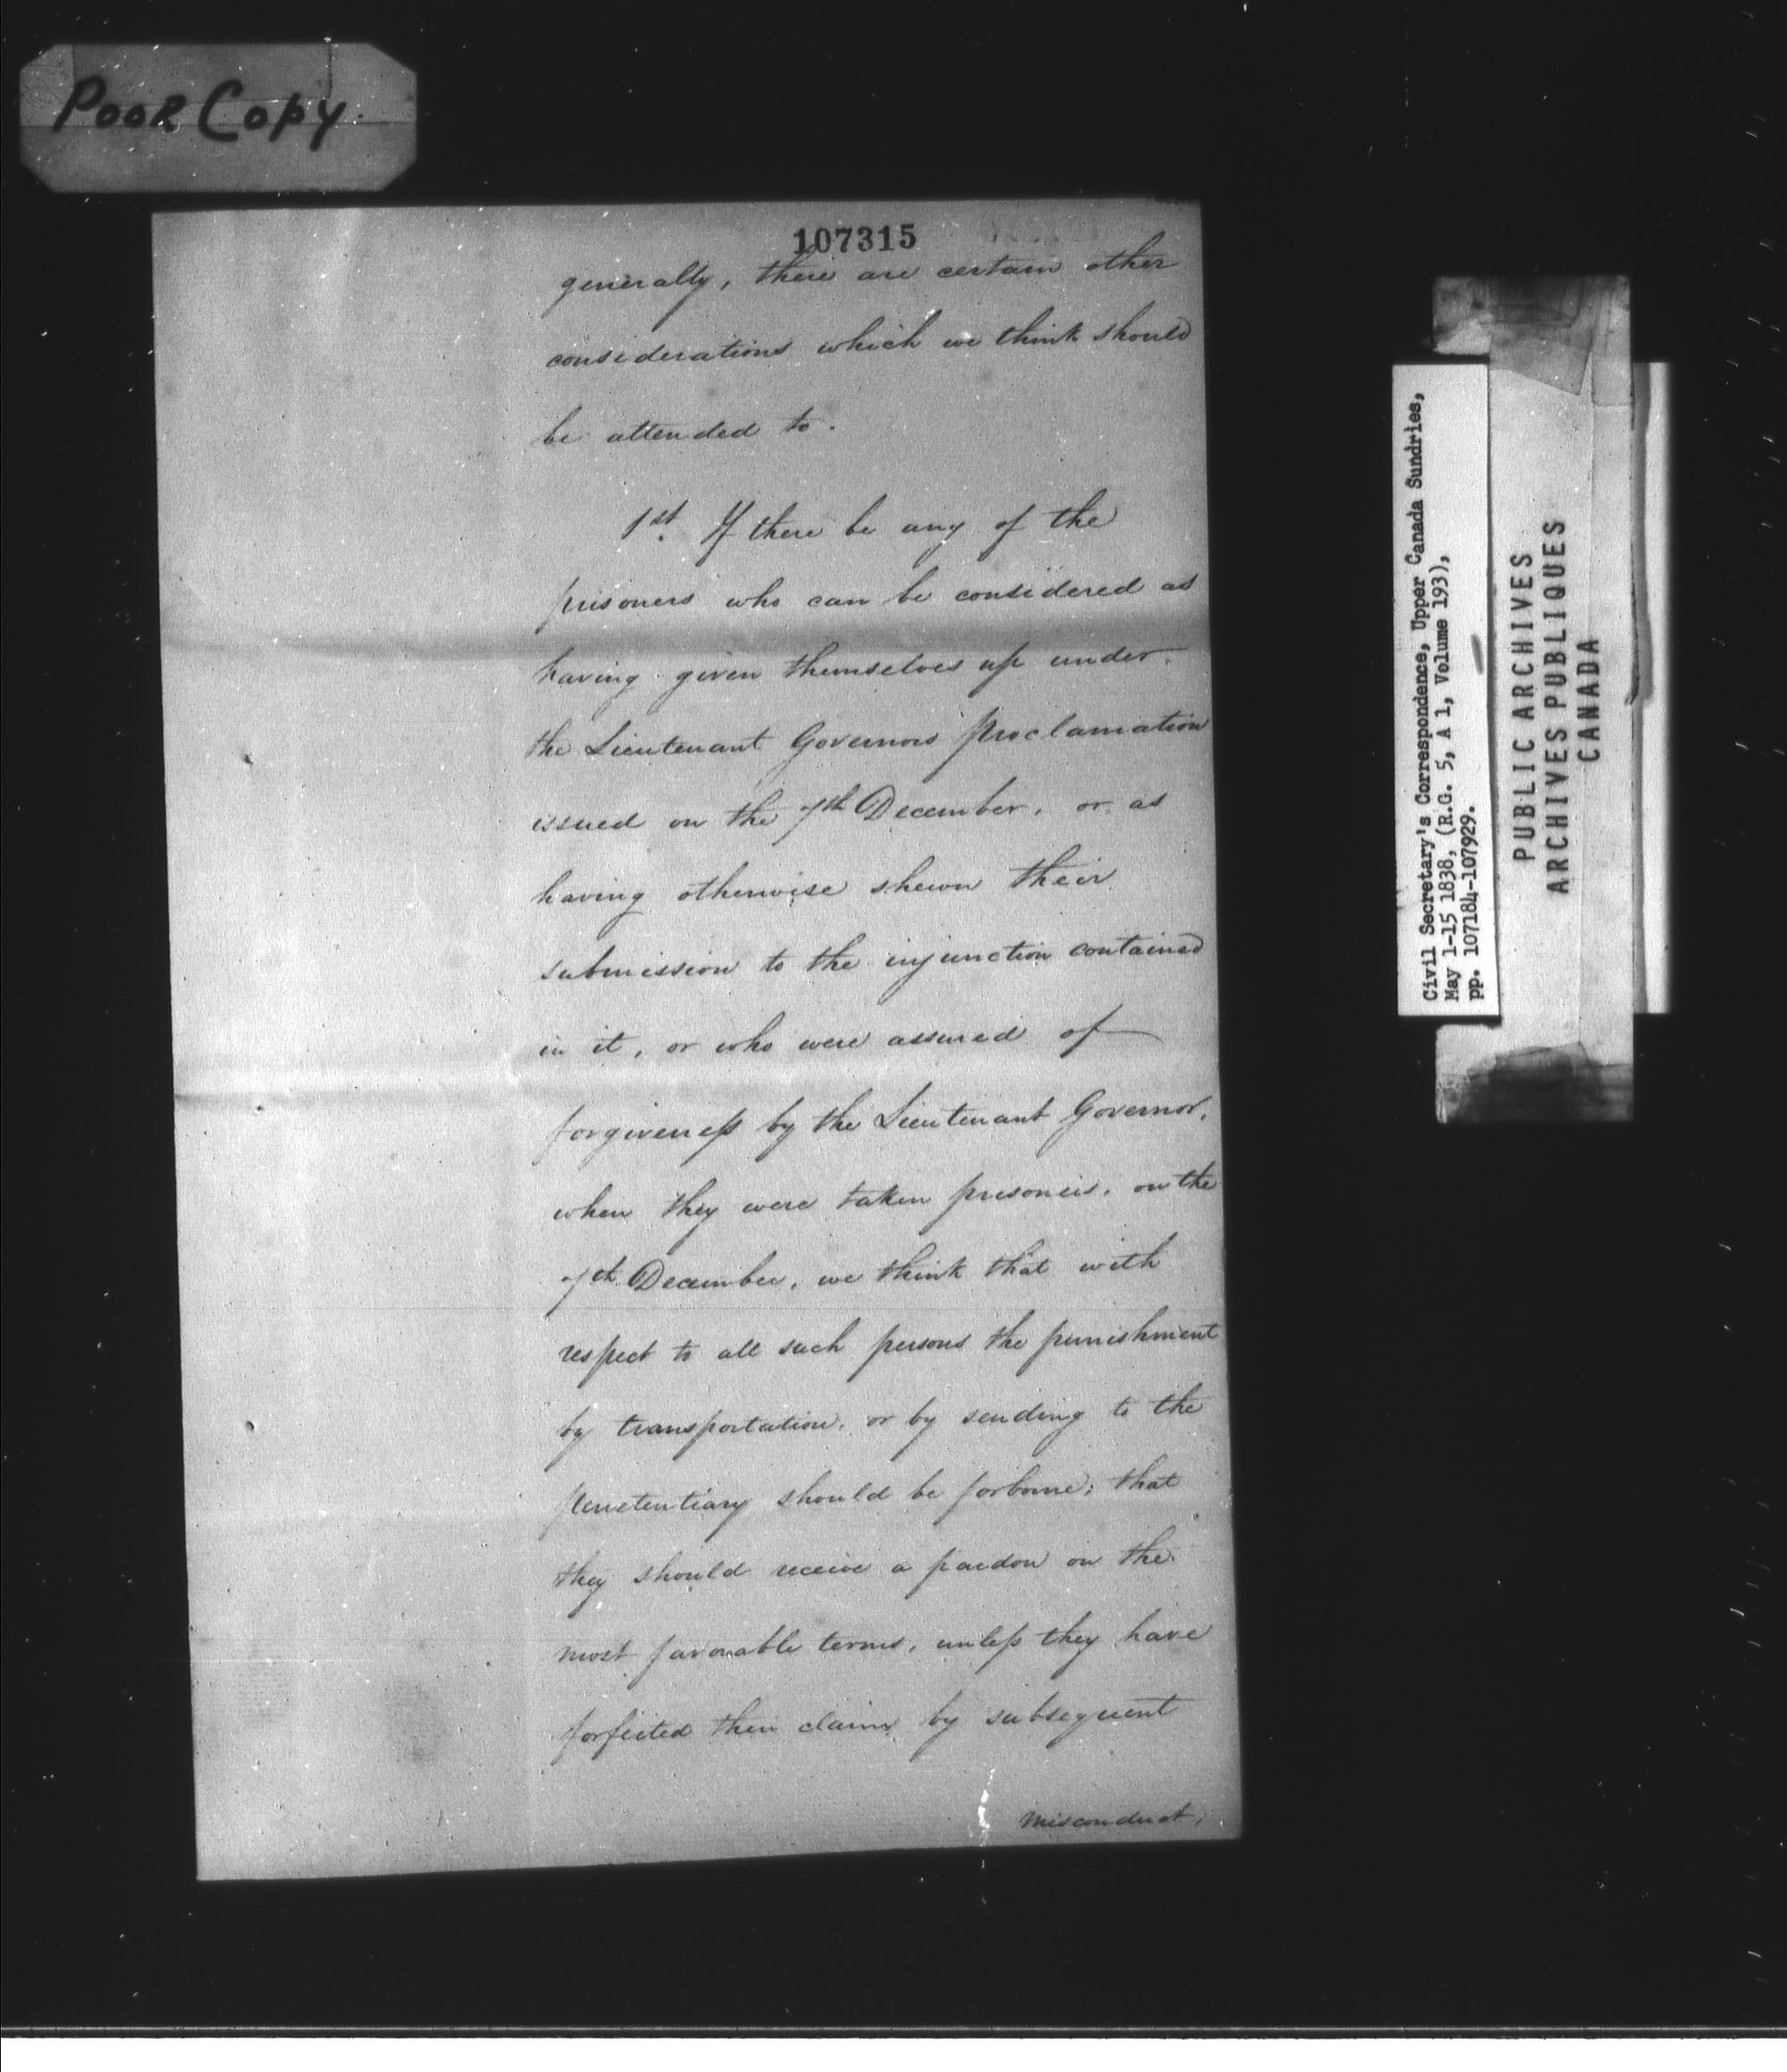 Poor Copy.
107315
generally, there are certain other
considerations which we think should
be attended to.
1st. If there be any of the
prisoners who can be considered as
having given themselves up under
the Lieutenant Governors Proclamation
issued on the 7th December, or as
having otherwise shewn their
submission to the injunction contained
in it, or who were assured of
forgiveness by the Lieutenant Governor,
when they were taken prisoners, on the
7th December, we think that with
respect to all such persons the punishment
by transportation, or by sending to the
penetentiary should be forborne; that
they should receive a pardon on the
most favorable terms, unless they have
forfeited their claim by subsequent
misconduct;
Civil Secretary's Correspondence, Upper Canada Sundries,
May 1-15 1838, (R.G. 5, A 1, Volume 193),
pp. 107184-107929.
PUBLIC ARCHIVES
ARCHIVES PUBLIQUES
CANADA